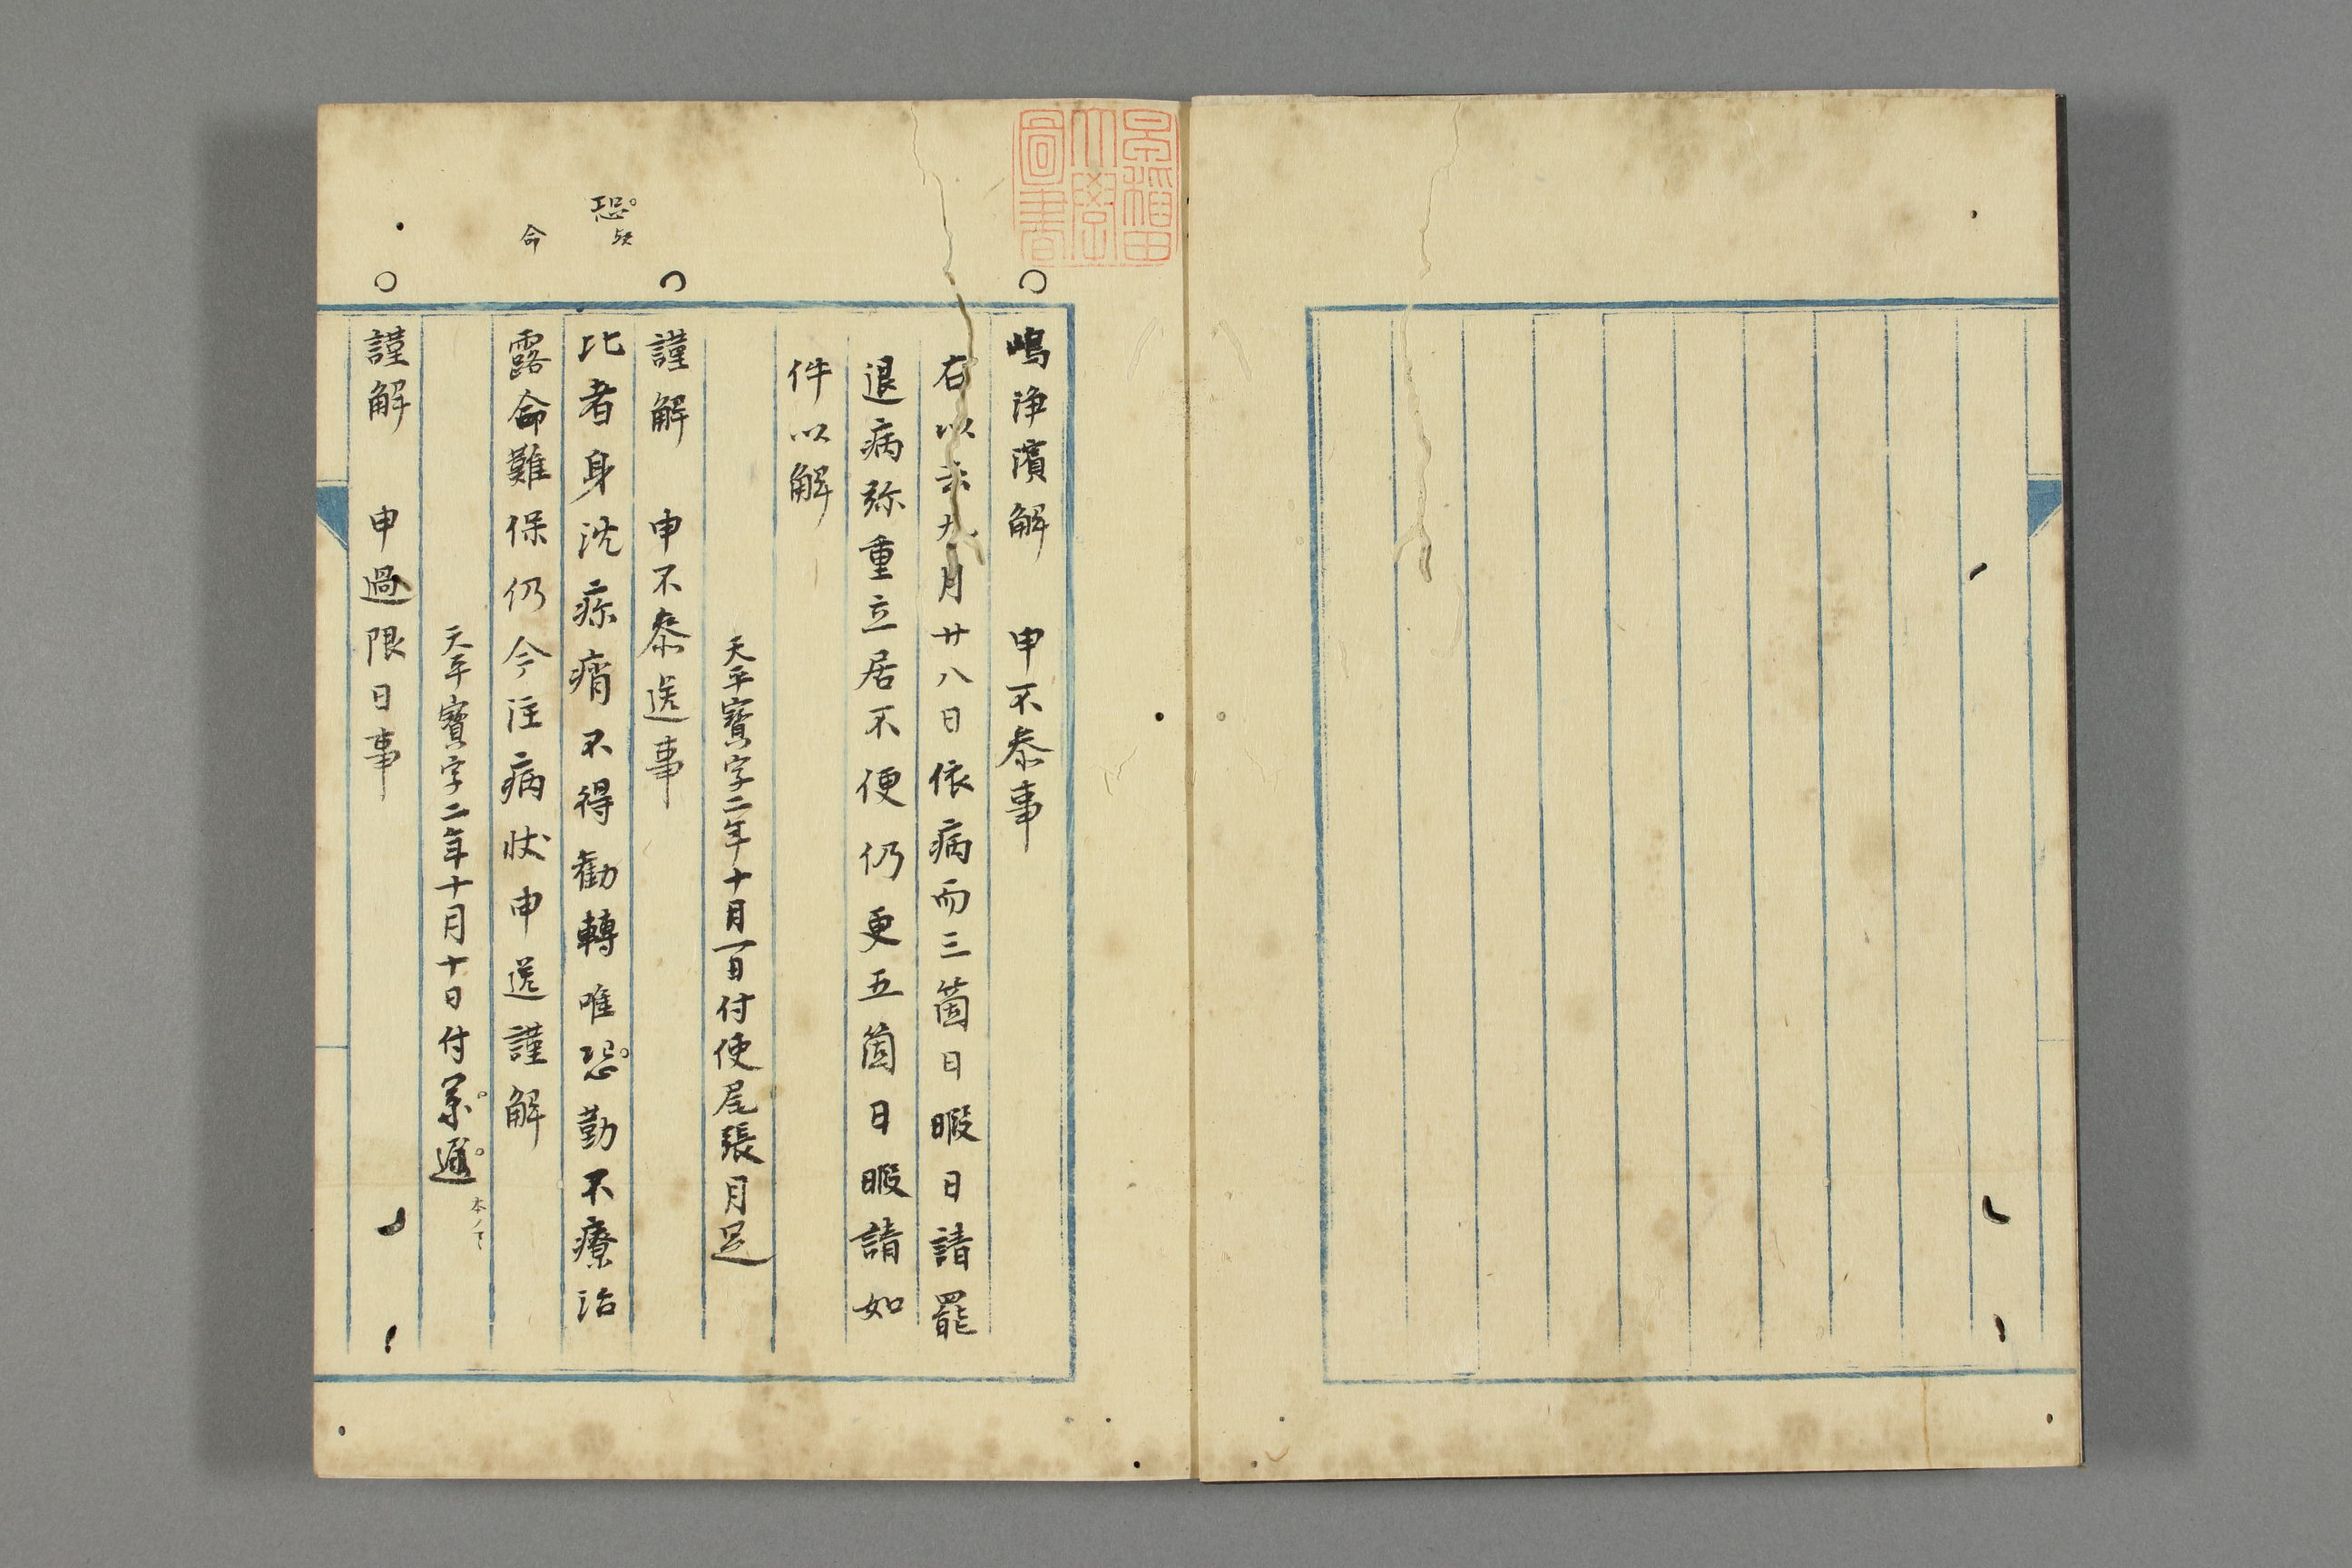 早稲田
大學
圖書
嶋浄濱解　申不叅事
右以去九月廿八日依病而三箇日暇日請罷
退病弥重立居不便仍更五箇日暇請如
件以解
天平寶字二年十月一日付使尾張月足
謹解　申不叅送事
恐
比者身沈疹痟不得勸轉唯恐勤不療治
命
露命難保仍今注病状申送謹解
天平寶字二年十月十日付
謹解　申過限日事